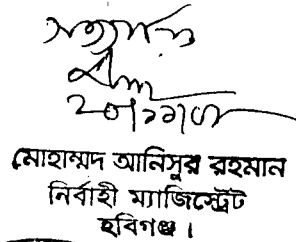 সত্যায়িত
মোহাম্মদ আনিসুর রহমান
নির্বাহী ম্যাজিস্ট্রেট
হবিগঞ্জ।